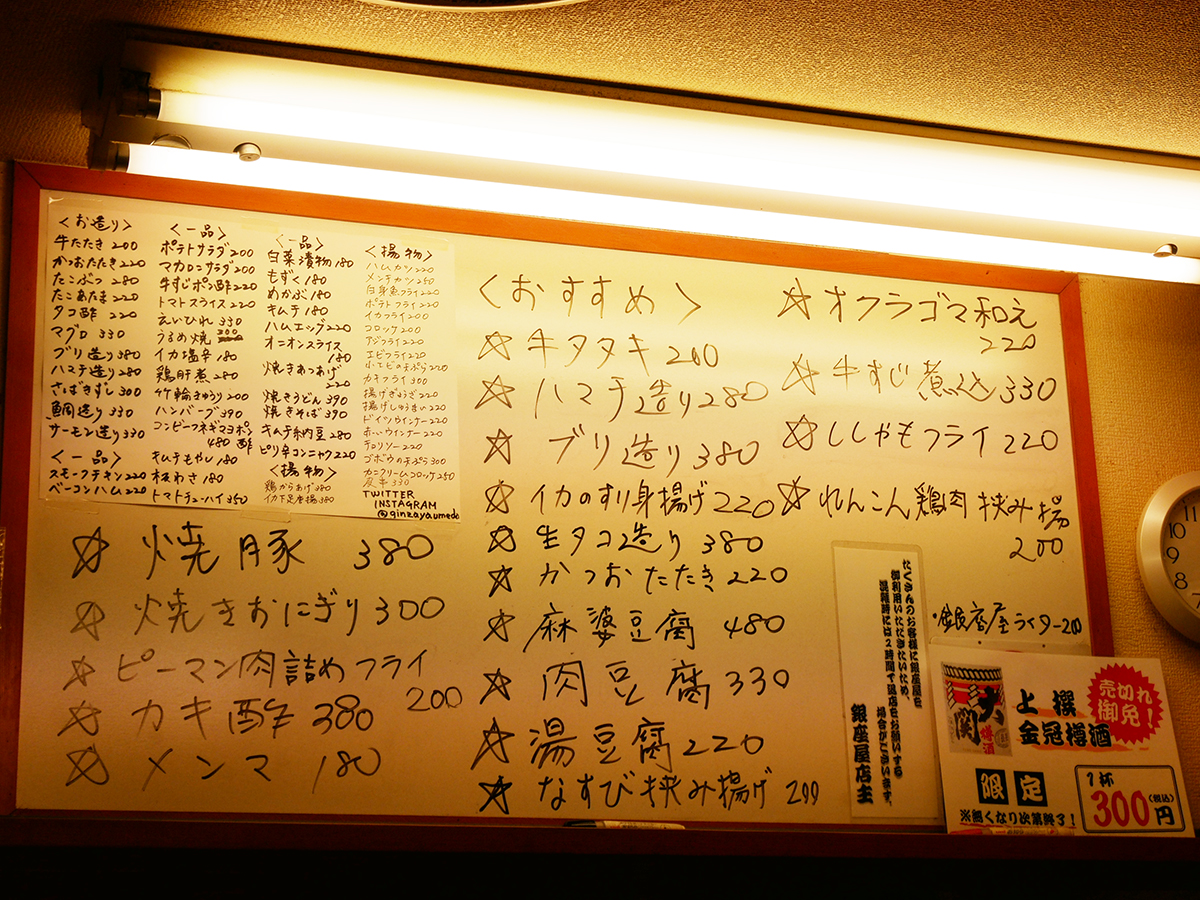 <お造り>
牛たたき 200
かつおたたき 220
たこぶつ 280
たこあたま 220
タコ酢 220
マグロ 330
ブリ造り 380
ハマチ造り 280
さばきずし 300
鯛造り 330
サーモン造り 330
<一品>
スモークチキン 220
ベーコンハム 220
<一品>
ポテトサラダ 200
マカロニサラダ 200
牛すじポン酢 220
トマトスライス 220
えいひれ 330
うるめ焼
イカ塩辛 180
鶏肝煮 280
竹輪きゅうり 200
ハンバーグ 390
コンビーフネギマヨポン
480 酢
キムチもやし 180
板わさ 180
トマトチューハイ 350
<一品>
白菜漬物 180
もずく 180
めかぶ 180
キムチ 180
ハムエッグ 220
オニオンスライス
180
焼きあつあげ
220
焼きうどん 390
焼きそば 390
キムチ納豆 280
ピリ辛コンニャク 220
<揚物>
鶏からあげ 380
イカ下足唐揚 380
<揚物>
ハムカツ 220
メンチカツ 250
白身魚フライ 220
ポテトフライ 220
イカフライ 200
コロッケ 200
アジフライ 220
エビフライ 220
小エビの天ぷら 220
カキフライ 300
揚げぎょうざ 220
揚げしゅうまい 220
ドイツウインナー 220
赤いウインナー 220
チョリソー 220
ゴボウの天ぷら 300
カニクリームコロッケ 250
TWITTER
INSTAGRAM
@ginzayaumeda
☆ 焼豚 380
☆ 焼きおにぎり 300
☆ ピーマン肉詰めフライ
200
☆ カキ酢 380
☆ メンマ 180
<おすすめ>
☆ 牛タタキ 200
☆ ハマチ造り 280
☆ ブリ造り 380
☆ イカのすり身揚げ 220
☆ 生タコ造り 380
☆ かつおたたき 220
☆ 麻婆豆腐 480
☆ 肉豆腐 330
☆ 湯豆腐 220
☆ なすび挟み揚げ 200
☆ オクラゴマ和え
220
☆ 牛すじ煮込 330
☆ ししゃもフライ 220
☆ れんこん鶏肉挟み揚
200
・銀座屋ライター 200
たくさんのお客様に銀座屋を
御利用いただきたいため、
混雑時には2時間で退店をお願いする
場合がございます。
銀座屋店主
大関
樽酒
上撰
金冠樽酒
売切れ
御免!
限定
※無くなり次第終了!
1杯
300円(税込)
11
10
9
8